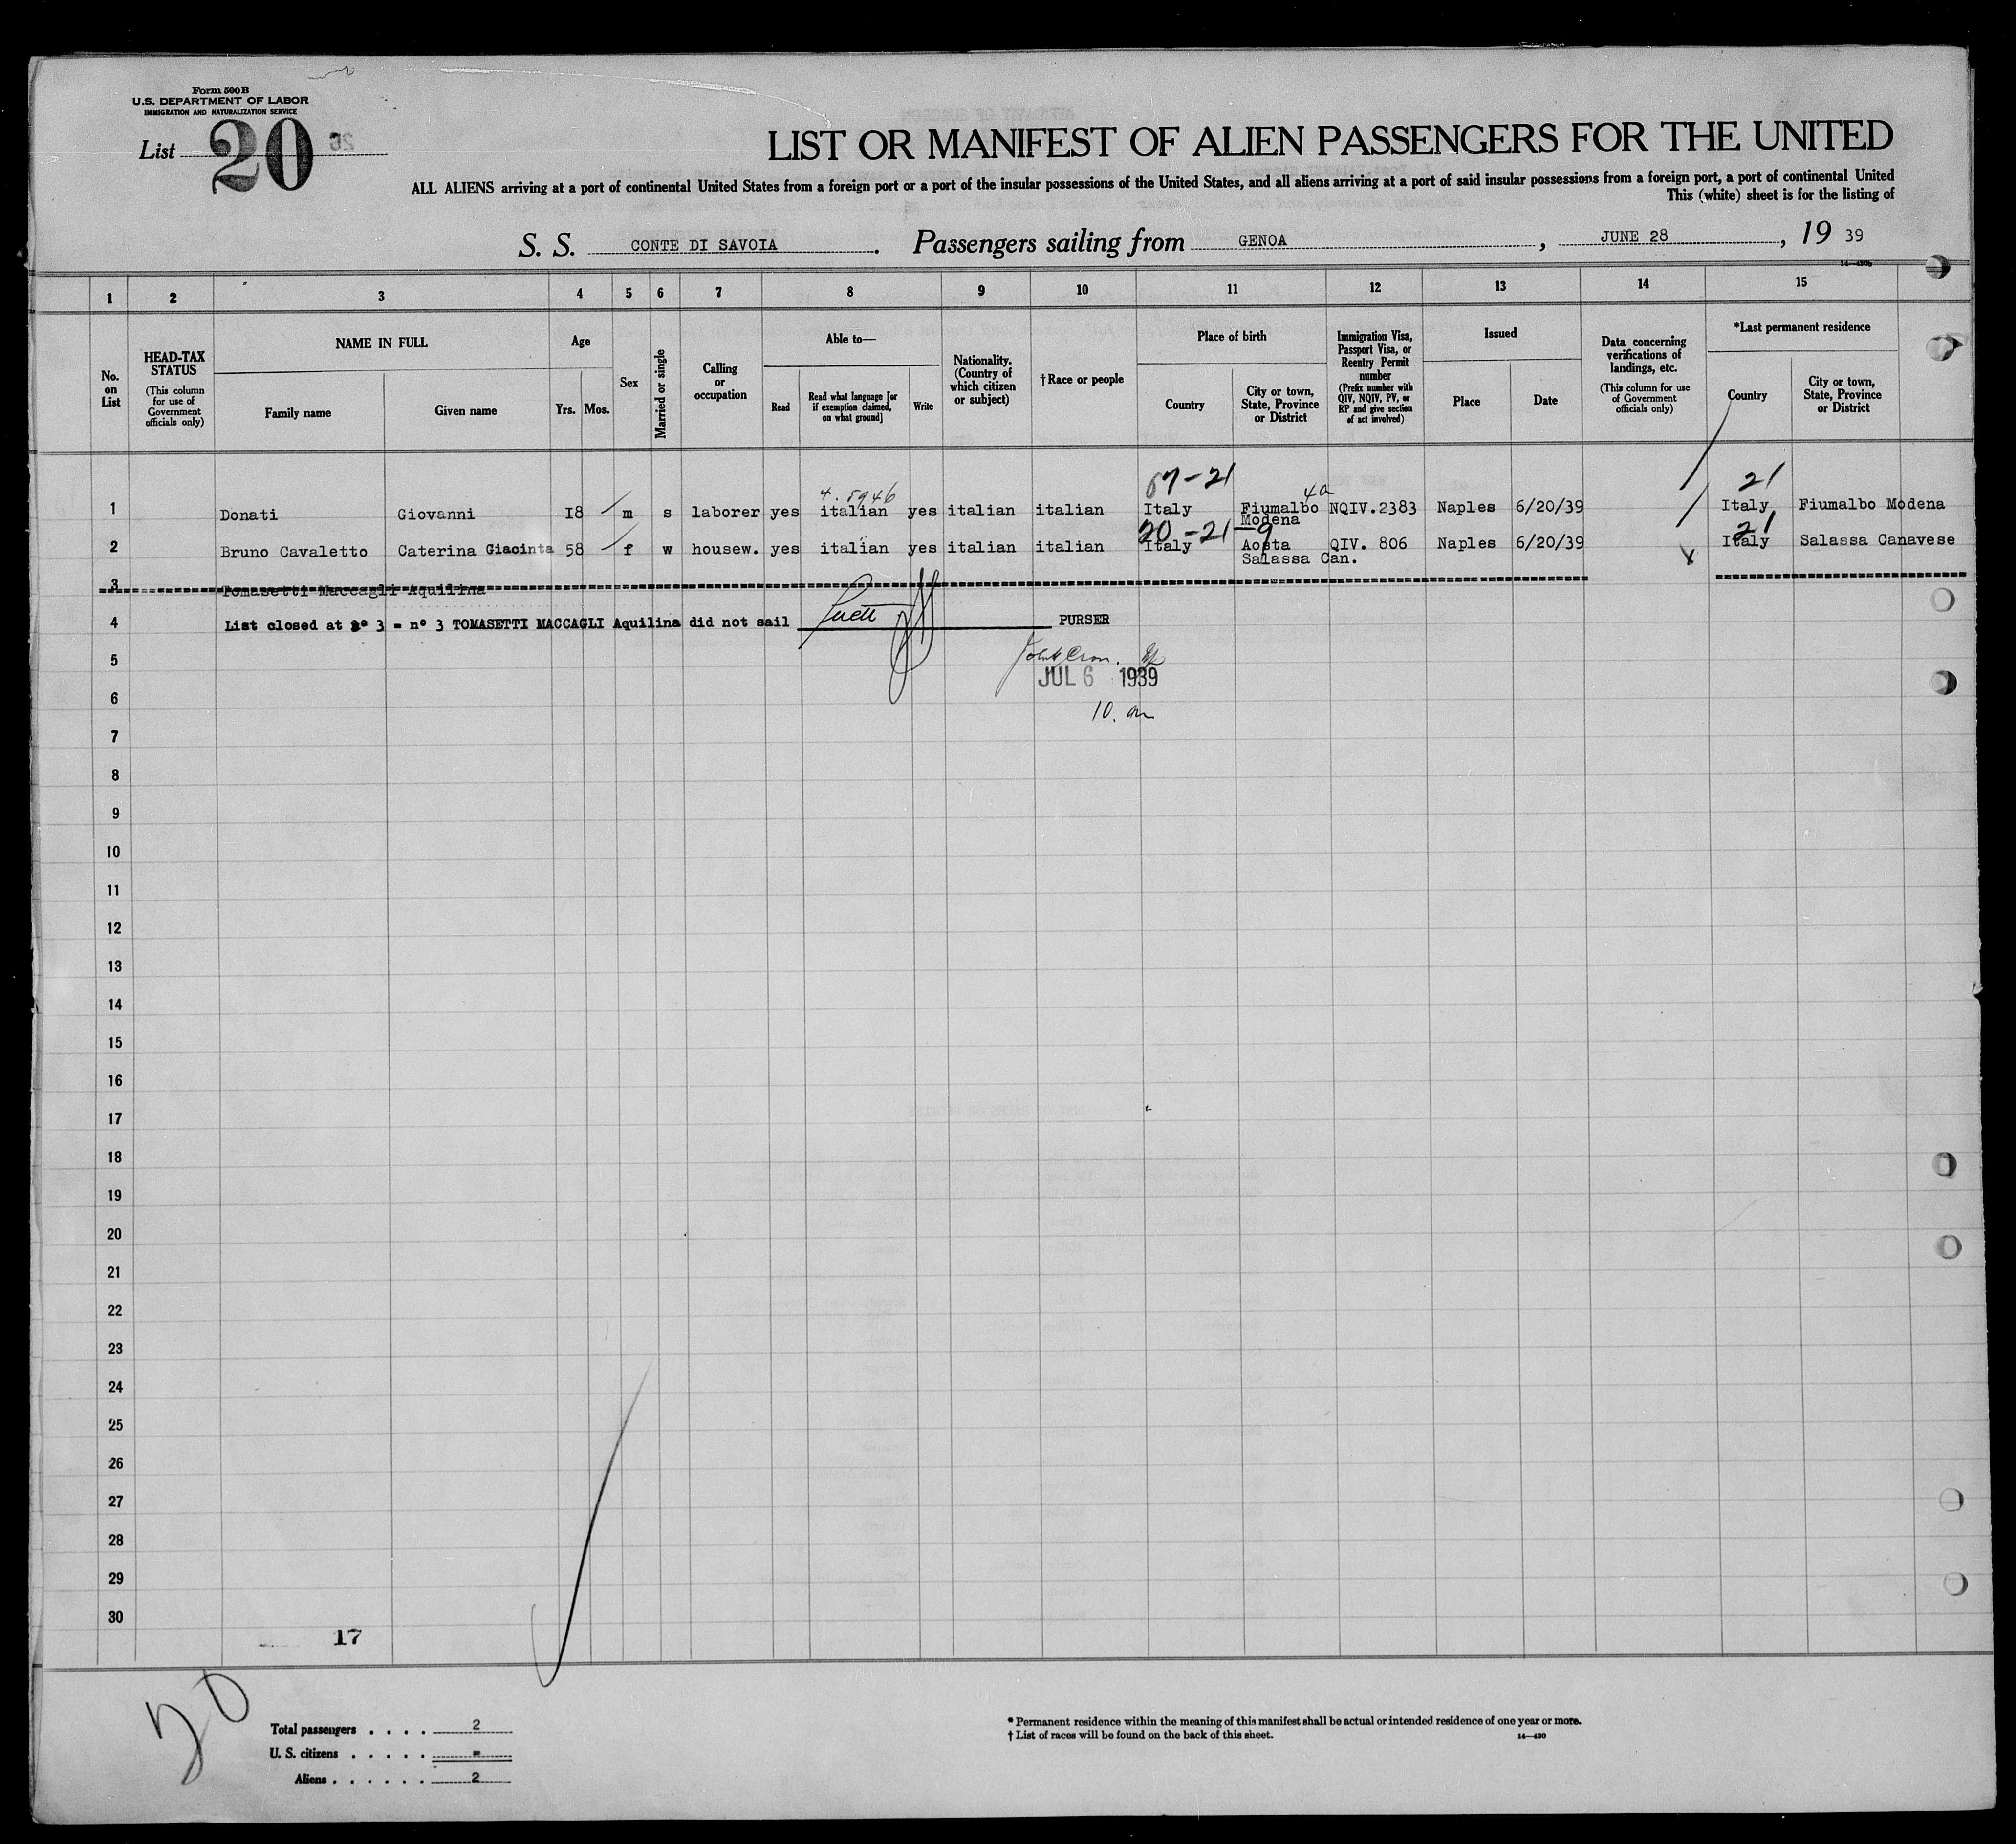 Form 500 B
U.S. DEPARTMENT OF LABOR
IMMIGRATION AND NATURALIZATION SERVICE
List 20
LIST OR MANIFEST OF ALIEN PASSENGERS FOR THE UNITED
ALL ALIENS arriving at a port of continental United States from a foreign port or a port of the insular possessions of the United States, and all aliens arriving at a port of said insular possessions from a foreign port, a port of continental United
This (white) sheet is for the listing of
S. S. CONTE DI SAVOIA. Passengers sailing from GENOA, JUNE 28, 19 39
1 2 3 4 5 6 7 8 9 10 11 12 13 14 15
No. on List
HEAD-TAX STATUS
(This column for use of Government officials only)
NAME IN FULL
Family name
Given name
Age
Yrs. Mos.
Sex
Married or single
Calling or occupation
Able to—
Read
Read what language [or if exemption claimed, on what ground]
Write
Nationality. (Country of which citizen or subject)
†Race or people
Place of birth
Country
City or town, State, Province or District
Immigration Visa, Passport Visa, or Reentry Permit number
(Prefix number with QIV, NQIV, PV, or RP and give section of act involved)
Issued
Place
Date
Data concerning verifications of landings, etc.
(This column for use of Government officials only)
*Last permanent residence
Country
City or town, State, Province or District
67-21 21
4.5946 4a
1 Donati Giovanni 18 m s laborer yes italian yes italian italian Italy Fiumalbo NQIV.2383 Naples 6/20/39 Italy Fiumalbo Modena
Modena
20-21-9 21
2 Bruno Cavaletto Caterina Giacinta 58 f w housew. yes italian yes italian italian Italy Aosta QIV. 806 Naples 6/20/39 Italy Salassa Canavese
Salassa Can.
3 Tomasetti Maccagli Aquilina
4 List closed at n° 3 = n° 3 TOMASETTI MACCAGLI Aquilina did not sail PURSER
5
JUL 6 1939
6
10. am
7
8
9
10
11
12
13
14
15
16
17
18
19
20
21
22
23
24
25
26
27
28
29
30
17
20
Total passengers . . . . 2
U. S. citizens . . . . . =
Aliens . . . . . . 2
* Permanent residence within the meaning of this manifest shall be actual or intended residence of one year or more.
† List of races will be found on the back of this sheet. 14—430